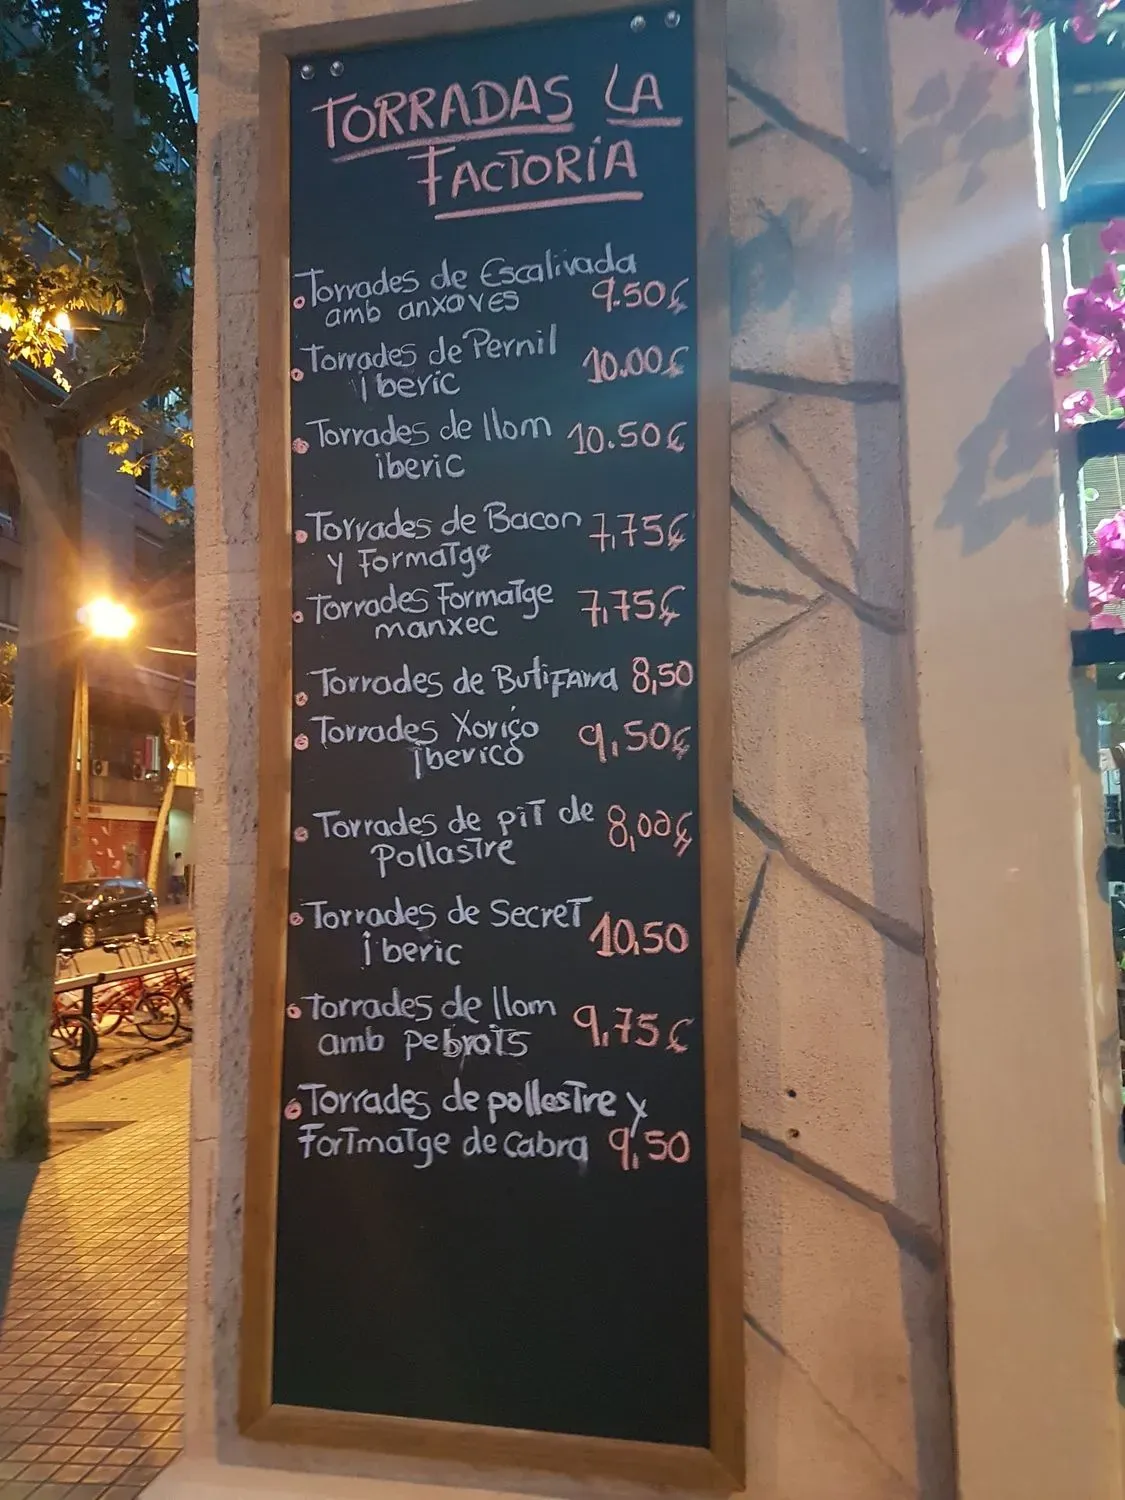 TORRADAS LA
FACTORIA
Torrades de Escalivada
amb anxoves 9.50€
Torrades de Pernil
Iberic 10.00€
Torrades de llom 10.50€
iberic
Torrades de Bacon 7,75€
y Formatge
Torrades Formatge 7,75€
manxec
Torrades de Butifarra 8,50
Torrades Xoriço 9,50€
iberico
Torrades de pit de 8,00€
pollastre
Torrades de Secret 10,50
iberic
Torrades de llom 9,75€
amb pebrots
Torrades de pollestre y
Fortmatge de cabra 9,50